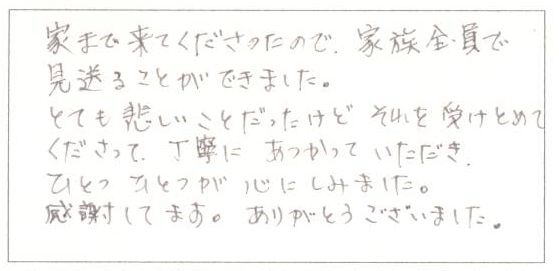 家まで来てくださったので、家族全員で
見送ることができました。
とても悲しいことだったけど それを受けとめて
くださって、丁寧に あつかって いただき、
ひとつ ひとつが 心に しみました。
感謝してます。ありがとうございました。